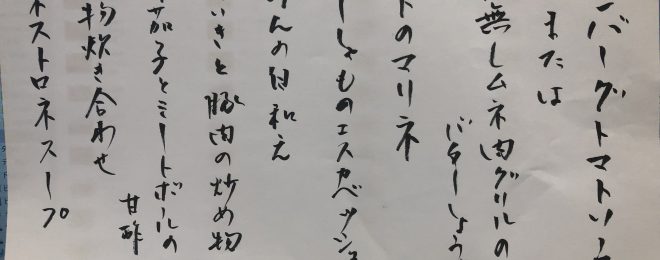 バーグトマトソー
または
無しムネ肉グリルの
バターしょう
トのマリネ
しゃものエスカベッシュ
んの白和え
いきと豚肉の炒め物
茄子とミートボールの
甘酢
物炊き合わせ
ネストロネスープ